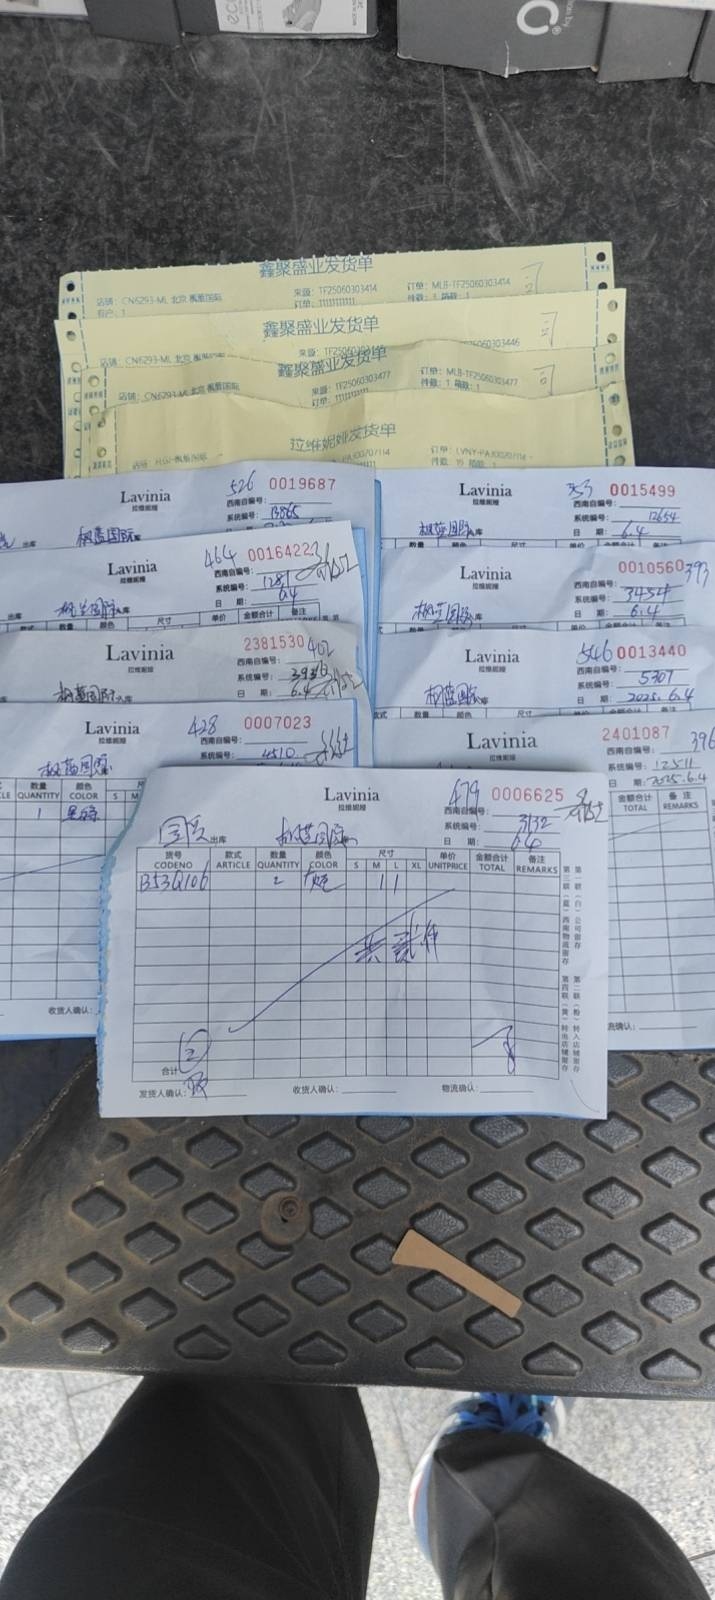 鑫聚盛业发货单
店铺：CN6293-ML 北京 枫蓝国际
来源：TF25060303414
订单：MLB-TF25060303414
订单：11111111111
件数：1 箱数：1
鑫聚盛业发货单
店铺：CN6293-ML 北京 枫蓝国际
鑫聚盛业发货单
店铺：CN6293-ML 北京 枫蓝国际
来源：TF25060303477
订单：MLB-TF25060303477
件数：1 箱数：1
拉维妮娅发货单
526 0019687
Lavinia
拉维妮娅
西南自编号：
系统编号：13865
出库 枫蓝国际
353 0015499
Lavinia
拉维妮娅
西南自编号：
系统编号：12654
枫蓝国际
日 期：6.4
464 0016422
Lavinia
拉维妮娅
西南自编号：
系统编号：
日 期：6.4
出库
0010560 393
Lavinia
拉维妮娅
西南自编号：
系统编号：3454
日 期：6.4
2381530 402
Lavinia
拉维妮娅
西南自编号：
系统编号：
出库 枫蓝国际
日 期：6.4
546 0013440
Lavinia
拉维妮娅
西南自编号：
系统编号：5307
枫蓝国际
日 期：2025.6.4
428 0007023
Lavinia
拉维妮娅
西南自编号：
系统编号：4510
枫蓝国际
数量 颜色
QUANTITY COLOR S M
1
2401087 396
Lavinia
拉维妮娅
西南自编号：
系统编号：12511
日 期：2025.6.4
金额合计 备注
TOTAL REMARKS
479 0006625
Lavinia
拉维妮娅
西南自编号：
系统编号：3132
出库 枫蓝国际
日 期：6.4
货号 款式 数量 颜色 尺寸 单价 金额合计 备注
CODENO ARTICLE QUANTITY COLOR S M L XL UNITPRICE TOTAL REMARKS
B53Q106 2 1 1
共贰件
合计 2
发货人确认：
收货人确认：
物流确认：
第一联（白）公司留存
第二联（粉）转入店铺留存
第三联（蓝）西南物流留存
第四联（黄）转出店铺留存
收货人确认：